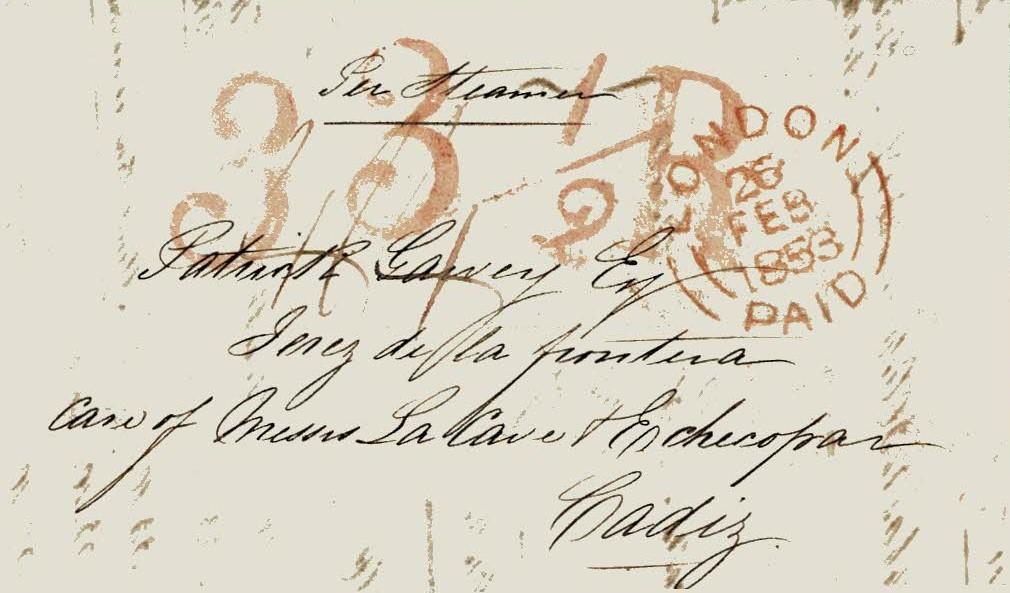 Per Steamer
33 R
2
LONDON
26
FEB
1853
PAID
Patrick Garvey Esq
Jerez de la frontera
care of Messrs La Cave & Echecopar
Cadiz.